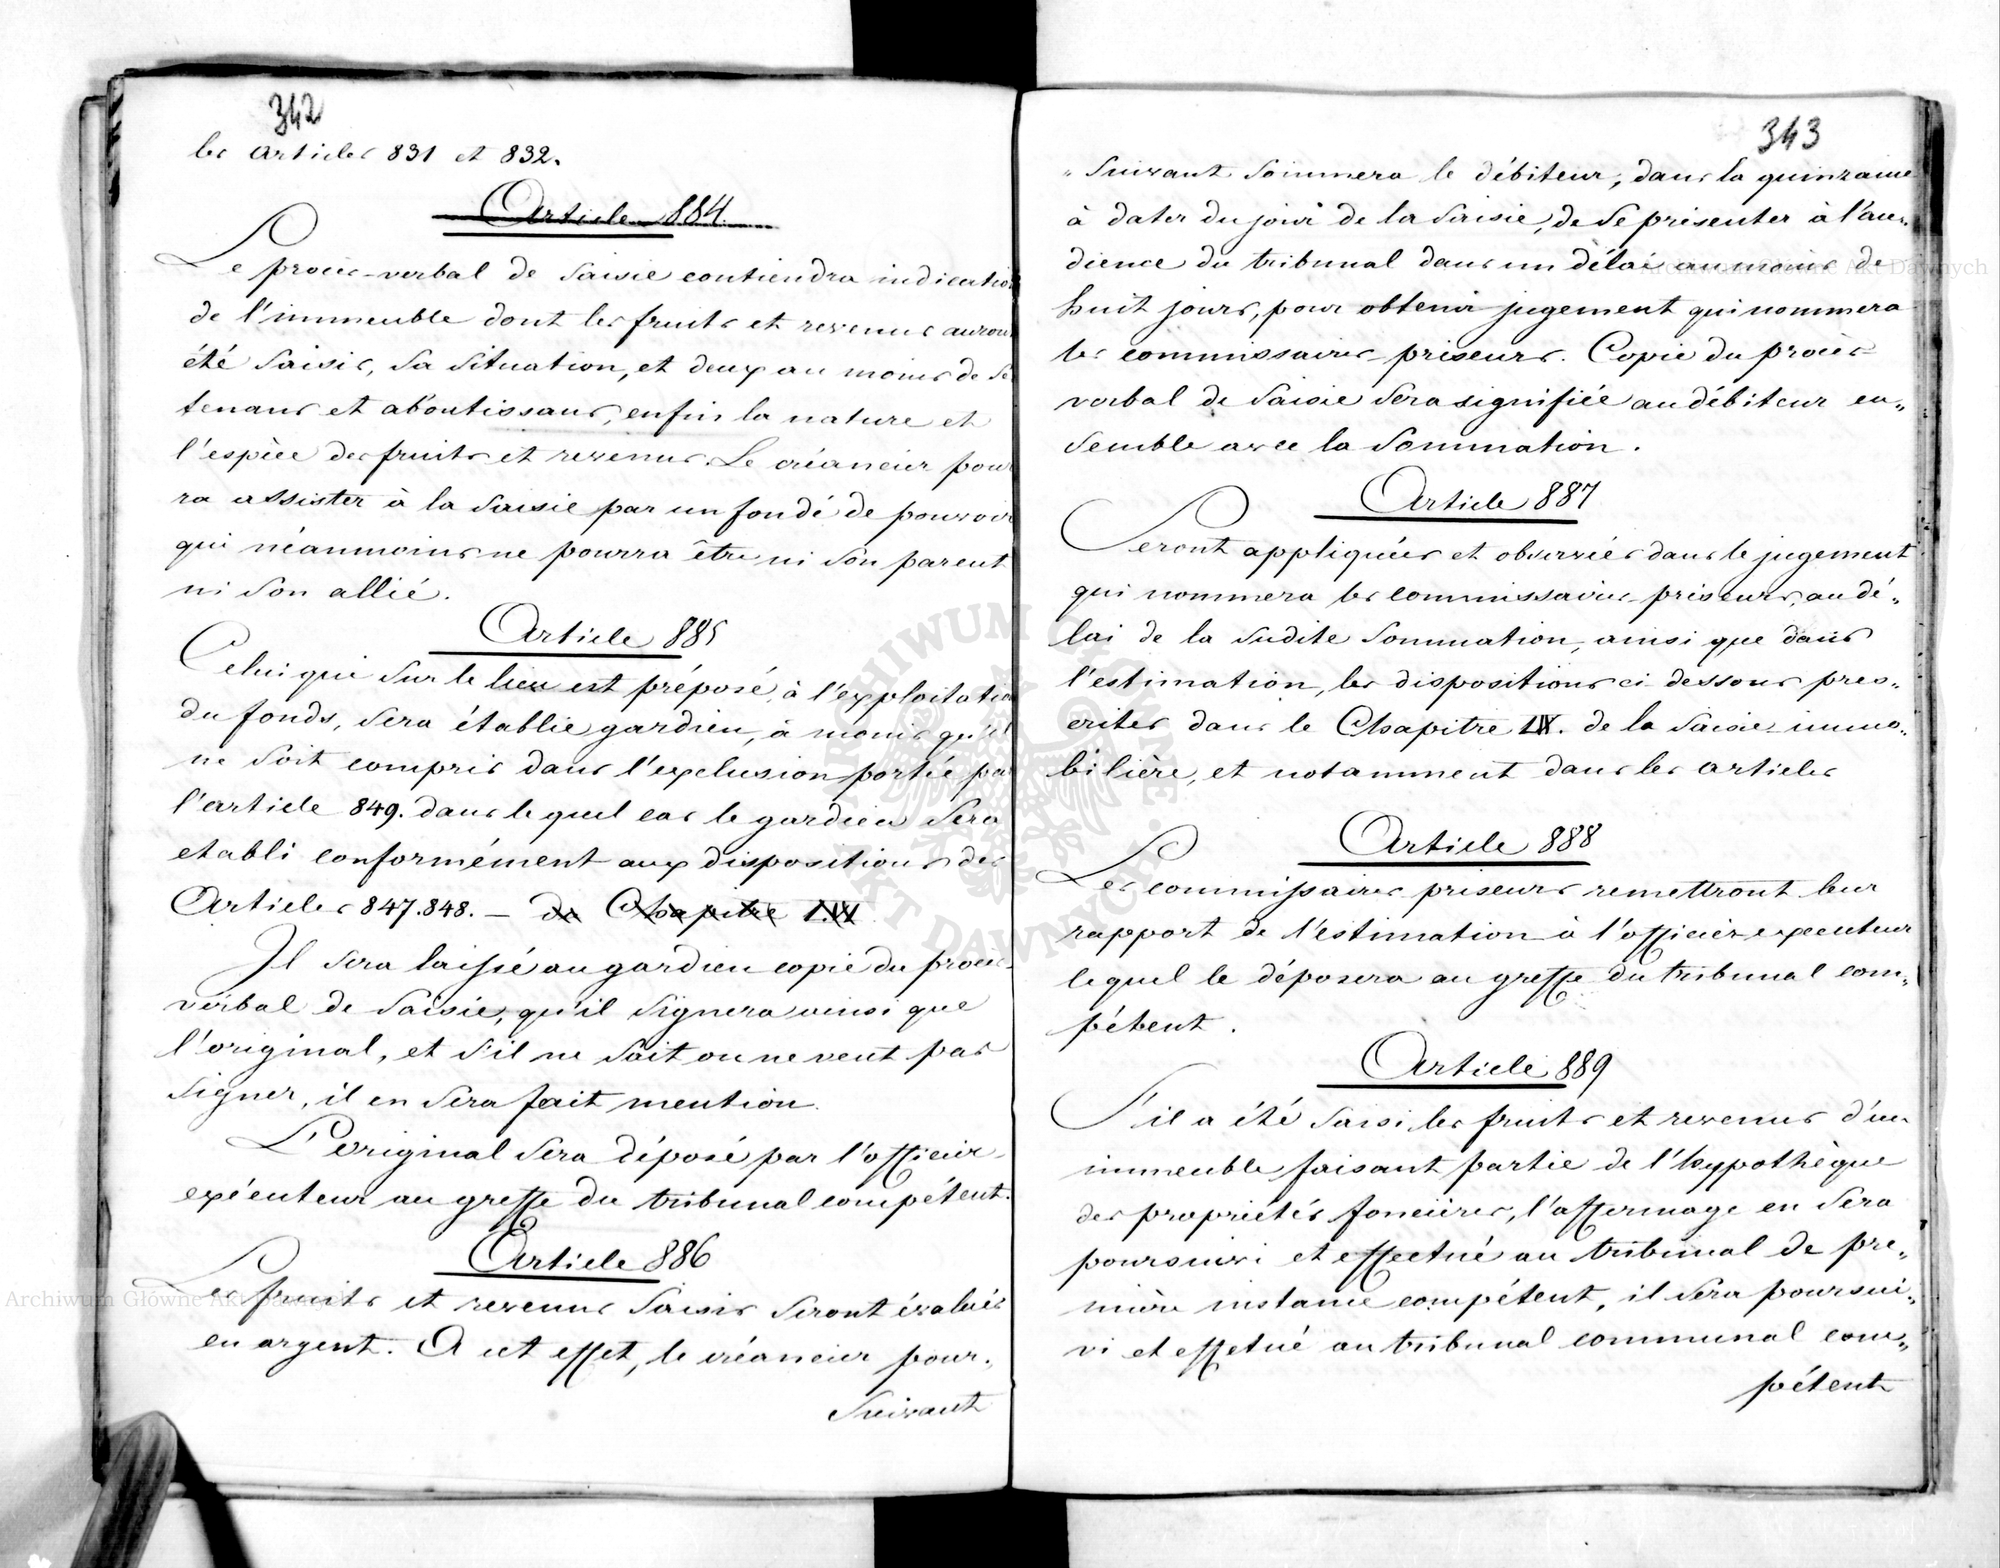 342
les articles 831 et 832.
Article 884.
Le procès-verbal de saisie contiendra indication
de l'immeuble dont les fruits et revenus auront
été saisis, sa situation, et deux au moins de ses
tenans et aboutissans, enfin la nature et
l'espèce des fruits et revenus. Le créancier pour
ra assister à la saisie par un fondé de pouvoir
qui néanmoins ne pourra être ni son parent
ni son allié.
Article 885
Celui qui sur le lieu est préposé, à l'exploitation
du fonds, sera établie gardien, à moins qu'il
ne soit compris dans l'exclusion portée par
l'article 849. dans le quel cas le gardien sera
etabli conformément aux dispositions des
Articles 847.848. — du Chapitre LIX
Il sera laissé au gardien copie du procès-
verbal de saisie, qu'il signera ainsi que
l'original, et s'il ne sait ou ne veut pas
signer, il en sera fait mention.
L'original sera déposé par l'officier-
exécuteur au greffe du tribunal compétent.
Article 886
Les fruits et revenus saisis seront évalués
en argent. A cet effet, le créancier pour„
suivant
343
„ suivant sommera le débiteur, dans la quinzaine
à dater du jour de la saisie, de se présenter à l'au„
dience du tribunal dans un délai au moins de
huit jours, pour obtenir jugement qui nommera
les commissaires-priseurs. Copie du procès-
verbal de saisie sera signifiée au débiteur en„
semble avec la sommation.
Article 887
Seront appliquées et observées dans le jugement
qui nommera les commissaires-priseurs, au dé„
lai de la sudite sommation, ainsi que dans
l'estimation, les dispositions ci-dessous pres„
crites dans le Chapitre LIX. de la saisie-immo„
bilière, et notamment dans les articles
Article 888
Les commissaires priseurs remettront leur
rapport de l'estimation à l'officier-executeur
lequel le déposera au greffe du tribunal com„
pétent.
Article 889
S'il a été saisi les fruits et revenus d'un
immeuble faisant partie de l'hypothèque
des propriétés foncières, l'affermage en sera
poursuivi et effectué au tribunal de pre„
mière instance compétent, il sera poursui„
vi et effetué au tribunal communal com„
pétent
Archiwum Główne Akt Dawnych
Archiwum Główne Akt Dawnych
ARCHIWUM GŁÓWNE AKT DAWNYCH